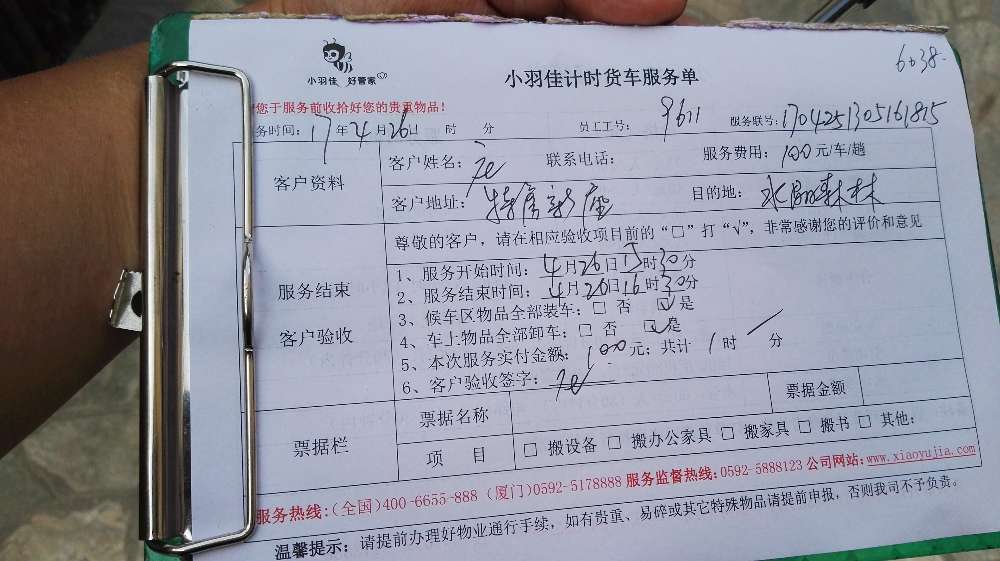 小羽佳 好管家
小羽佳计时货车服务单
6638
您于服务前收拾好您的贵重物品！
务时间：17年4月26日 时 分 员工工号： 9611 服务联号：1704251305161815
客户资料
客户姓名： 联系电话： 服务费用：100元/车/趟
客户地址：特房新座 目的地：水晶森林
服务结束
客户验收
尊敬的客户，请在相应验收项目前的“□”打“√”，非常感谢您的评价和意见
1、服务开始时间：4月26日15时30分
2、服务结束时间：4月26日16时30分
3、候车区物品全部装车：□ 否 ☑ 是
4、车上物品全部卸车：□ 否 ☑ 是
5、本次服务实付金额：100元；共计 1 时 / 分
6、客户验收签字：
票据栏
票据名称 票据金额
项 目 □ 搬设备 □ 搬办公家具 □ 搬家具 □ 搬书 □ 其他：
服务热线：（全国）400-6655-888（厦门）0592-5178888 服务监督热线：0592-5888123 公司网站：www.xiaoyujia.com
温馨提示：请提前办理好物业通行手续，如有贵重、易碎或其它特殊物品请提前申报，否则我司不予负责。